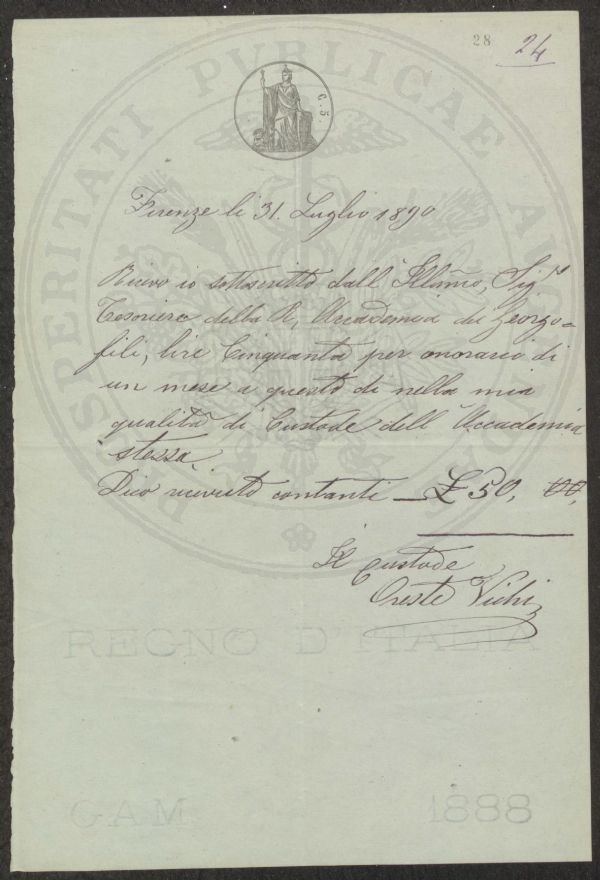 28 24
C. 5.
PROSPERITATI PUBLICAE
Firenze li 31. Luglio 1890
Ricevo io sottoscritto dall' Illmo, Sigr
Tesoriere della R. Accademia dei Georgo=
fili, lire Cinquanta per onorario di
un mese a questo dì nella mia
qualità di Custode dell' Accademia
stessa.
Dico ricevuto contanti £ 50, 00,
Il Custode
Oreste Vichi
REGNO D'ITALIA
GAM 1888